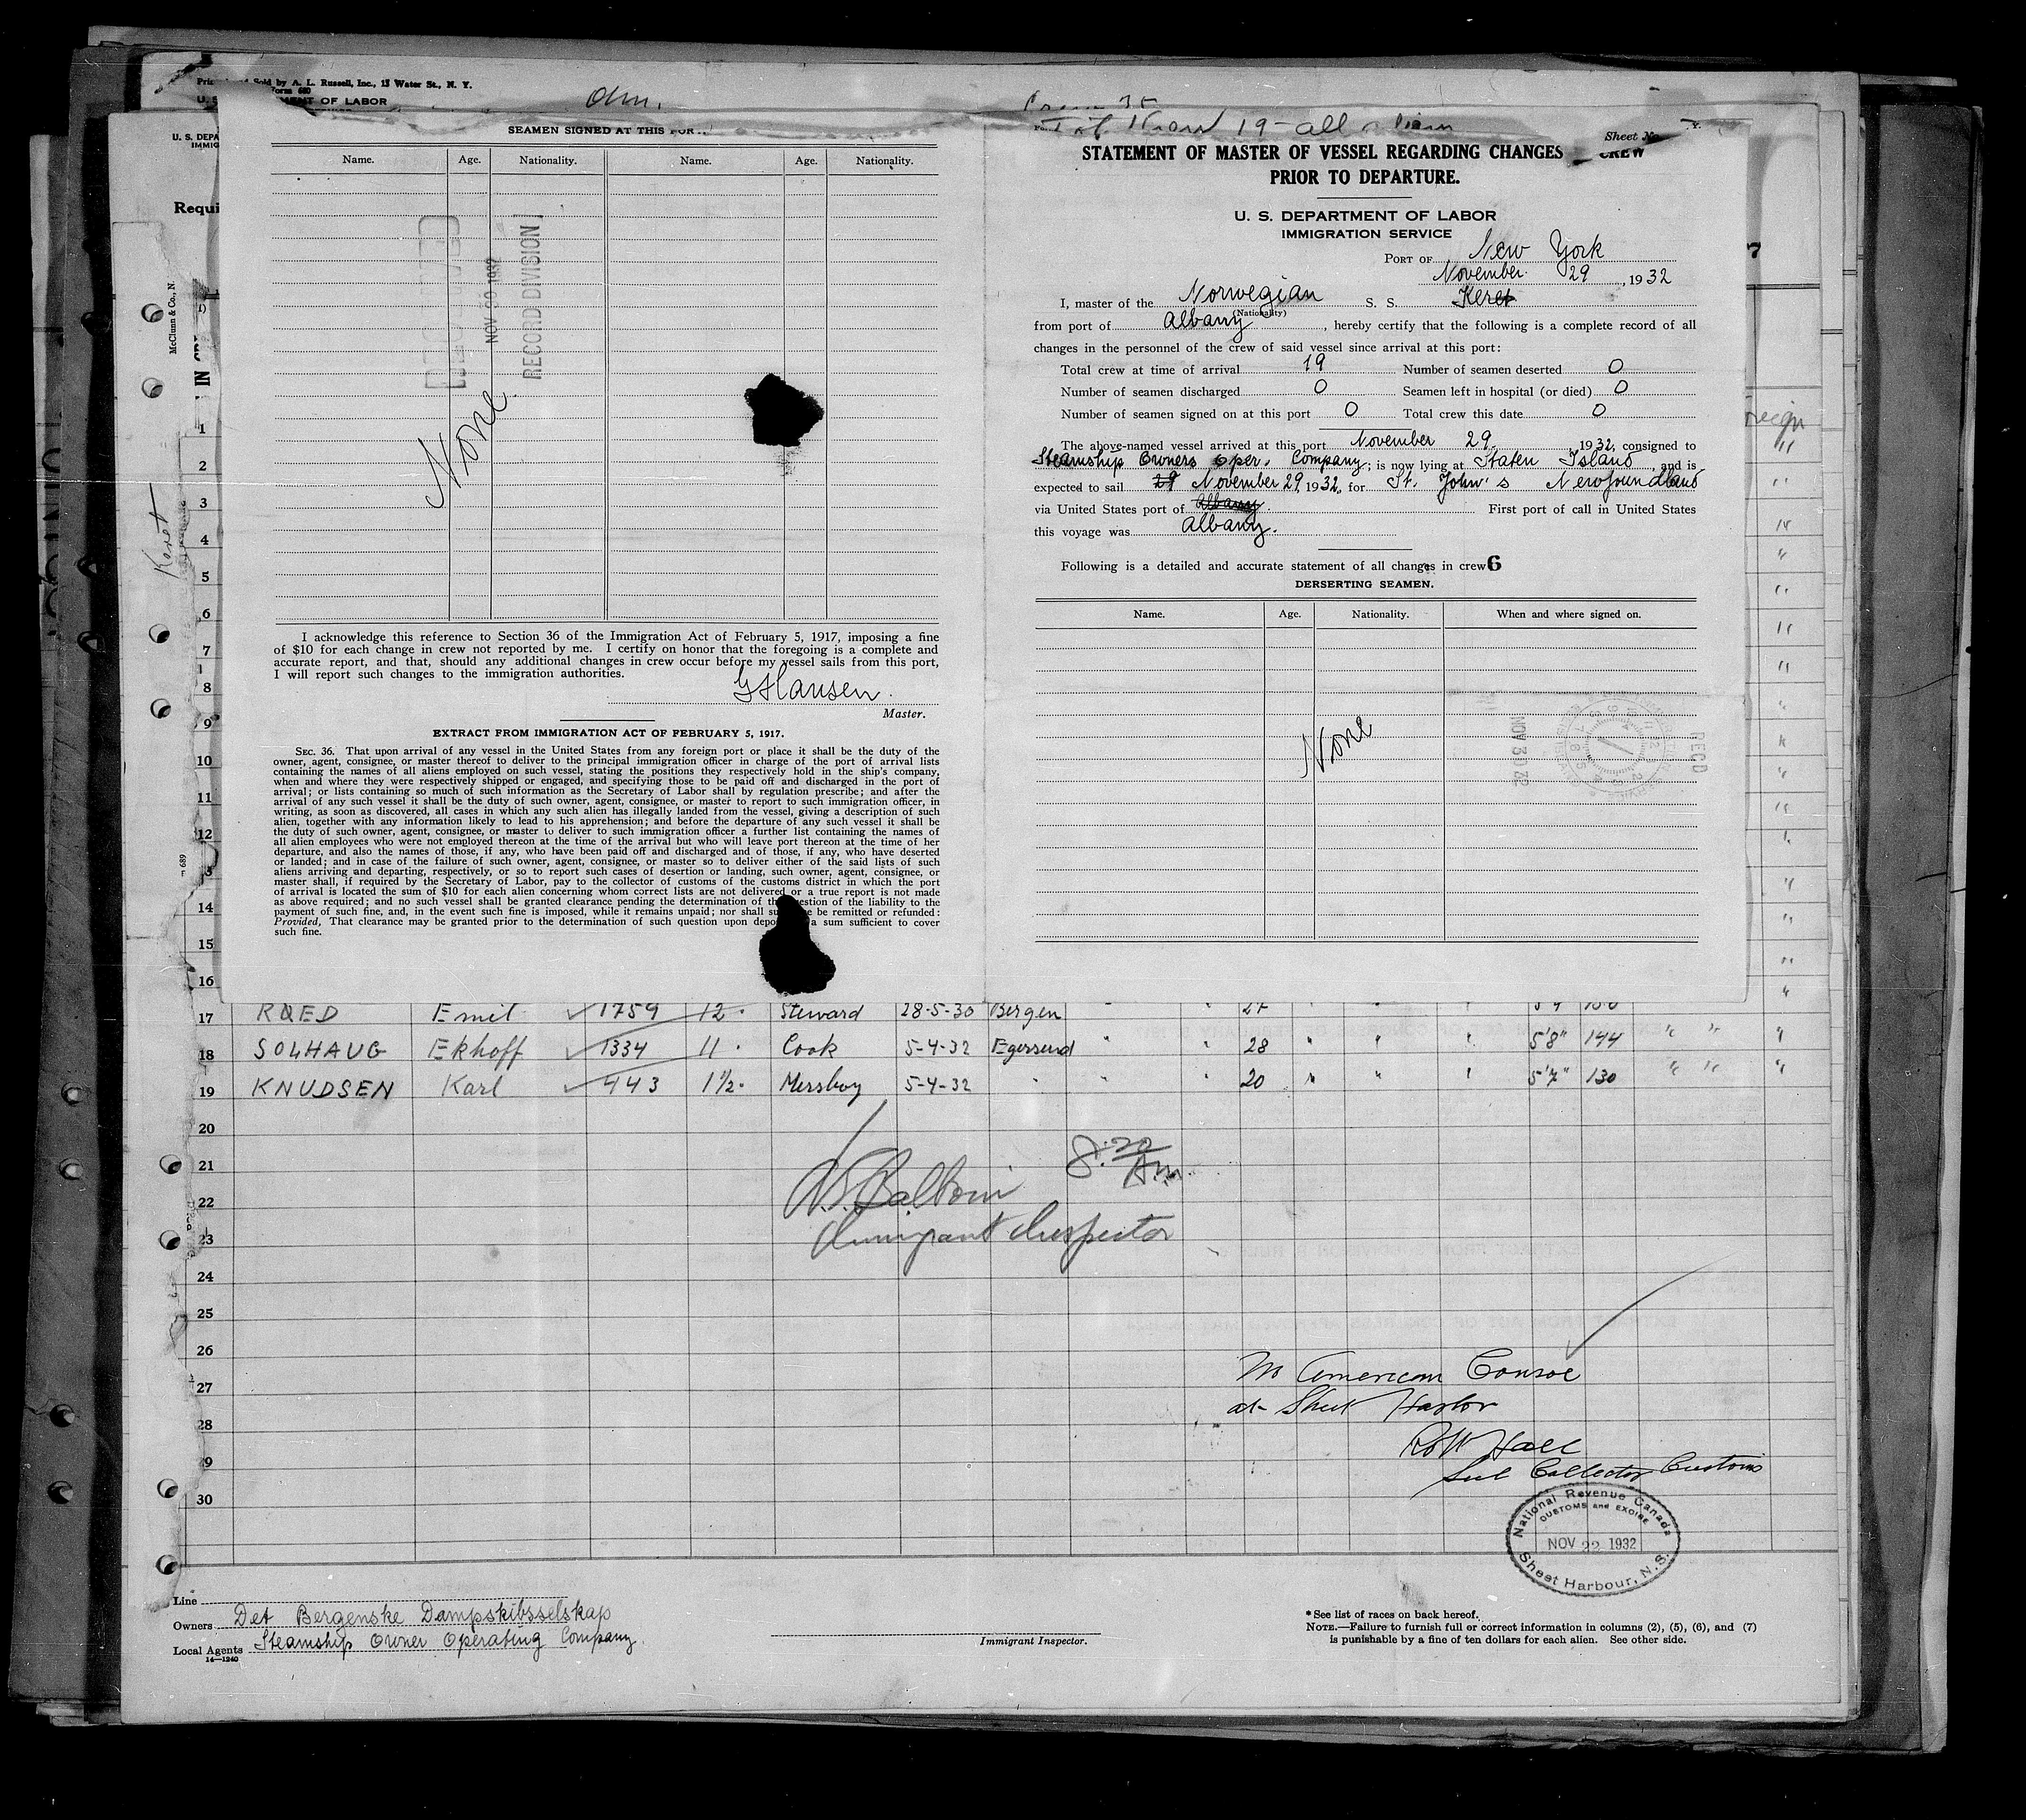 Sold by A. L. Russell, Inc., 13 Water St., N. Y.
Form 680
OF LABOR
U. S. DEPA
IMMIG
Requi
McClunn & Co., N.
Keret
689
SEAMEN SIGNED AT THIS POR
Name. Age. Nationality. Name. Age. Nationality.
NOV 30 1932
RECORD DIVISION
None
I acknowledge this reference to Section 36 of the Immigration Act of February 5, 1917, imposing a fine
of $10 for each change in crew not reported by me. I certify on honor that the foregoing is a complete and
accurate report, and that, should any additional changes in crew occur before my vessel sails from this port,
I will report such changes to the immigration authorities.
G Hansen.
Master.
EXTRACT FROM IMMIGRATION ACT OF FEBRUARY 5, 1917.
SEC. 36. That upon arrival of any vessel in the United States from any foreign port or place it shall be the duty of the
owner, agent, consignee, or master thereof to deliver to the principal immigration officer in charge of the port of arrival lists
containing the names of all aliens employed on such vessel, stating the positions they respectively hold in the ship's company,
when and where they were respectively shipped or engaged, and specifying those to be paid off and discharged in the port of
arrival; or lists containing so much of such information as the Secretary of Labor shall by regulation prescribe; and after the
arrival of any such vessel it shall be the duty of such owner, agent, consignee, or master to report to such immigration officer, in
writing, as soon as discovered, all cases in which any such alien has illegally landed from the vessel, giving a description of such
alien, together with any information likely to lead to his apprehension; and before the departure of any such vessel it shall be
the duty of such owner, agent, consignee, or master to deliver to such immigration officer a further list containing the names of
all alien employees who were not employed thereon at the time of the arrival but who will leave port thereon at the time of her
departure, and also the names of those, if any, who have been paid off and discharged and of those, if any, who have deserted
or landed; and in case of the failure of such owner, agent, consignee, or master so to deliver either of the said lists of such
aliens arriving and departing, respectively, or so to report such cases of desertion or landing, such owner, agent, consignee, or
master shall, if required by the Secretary of Labor, pay to the collector of customs of the customs district in which the port
of arrival is located the sum of $10 for each alien concerning whom correct lists are not delivered or a true report is not made
as above required; and no such vessel shall be granted clearance pending the determination of th estion of the liability to the
payment of such fine, and, in the event such fine is imposed, while it remains unpaid; nor shall su e be remitted or refunded:
Provided, That clearance may be granted prior to the determination of such question upon depo a sum sufficient to cover
such fine.
19 - all
Sheet No.
STATEMENT OF MASTER OF VESSEL REGARDING CHANGES CREW
PRIOR TO DEPARTURE.
U. S. DEPARTMENT OF LABOR
IMMIGRATION SERVICE
PORT OF New York
November 29, 1932
I, master of the Norwegian S. S. Keret
(Nationality)
from port of Albany, hereby certify that the following is a complete record of all
changes in the personnel of the crew of said vessel since arrival at this port:
Total crew at time of arrival 19 Number of seamen deserted 0
Number of seamen discharged 0 Seamen left in hospital (or died) 0
Number of seamen signed on at this port 0 Total crew this date 0
The above-named vessel arrived at this port November 29, 1932, consigned to
Steamship Owners Oper. Company; is now lying at Staten Island, and is
expected to sail 29 November 29, 1932, for St. John's Newfoundland
via United States port of Albany. First port of call in United States
this voyage was Albany.
Following is a detailed and accurate statement of all changes in crew 6
DERSERTING SEAMEN.
Name. Age. Nationality. When and where signed on.
None
RECD
NOV 30 32
1
2
3
4
5
6
7
8
9
10
11
12
13
14
15
16
17 ROED Emil 1759 12 Steward 28-5-30 Bergen " " 27
18 SOLHAUG Ekhoff 1334 11 Cook 5-4-32 Egersund " " 28 " " " 5'8" 144 " " "
19 KNUDSEN Karl 443 1½ Messboy 5-4-32 " " " 20 " " " 5'7" 130 " " "
20
21
22
23
24
25
26
27
28
29
30
8:30 Am.
Baldwin
Immigrant Inspector
No American Consul
at Sheet Harbor
Hall
Sub Collector Customs
National Revenue Canada
CUSTOMS and EXCISE
NOV 22 1932
Sheet Harbour, N.S.
Line
Owners Det Bergenske Dampskibsselskap
Local Agents Steamship Owner Operating Company.
14—1240
Immigrant Inspector.
*See list of races on back hereof.
NOTE.—Failure to furnish full or correct information in columns (2), (5), (6), and (7)
is punishable by a fine of ten dollars for each alien. See other side.